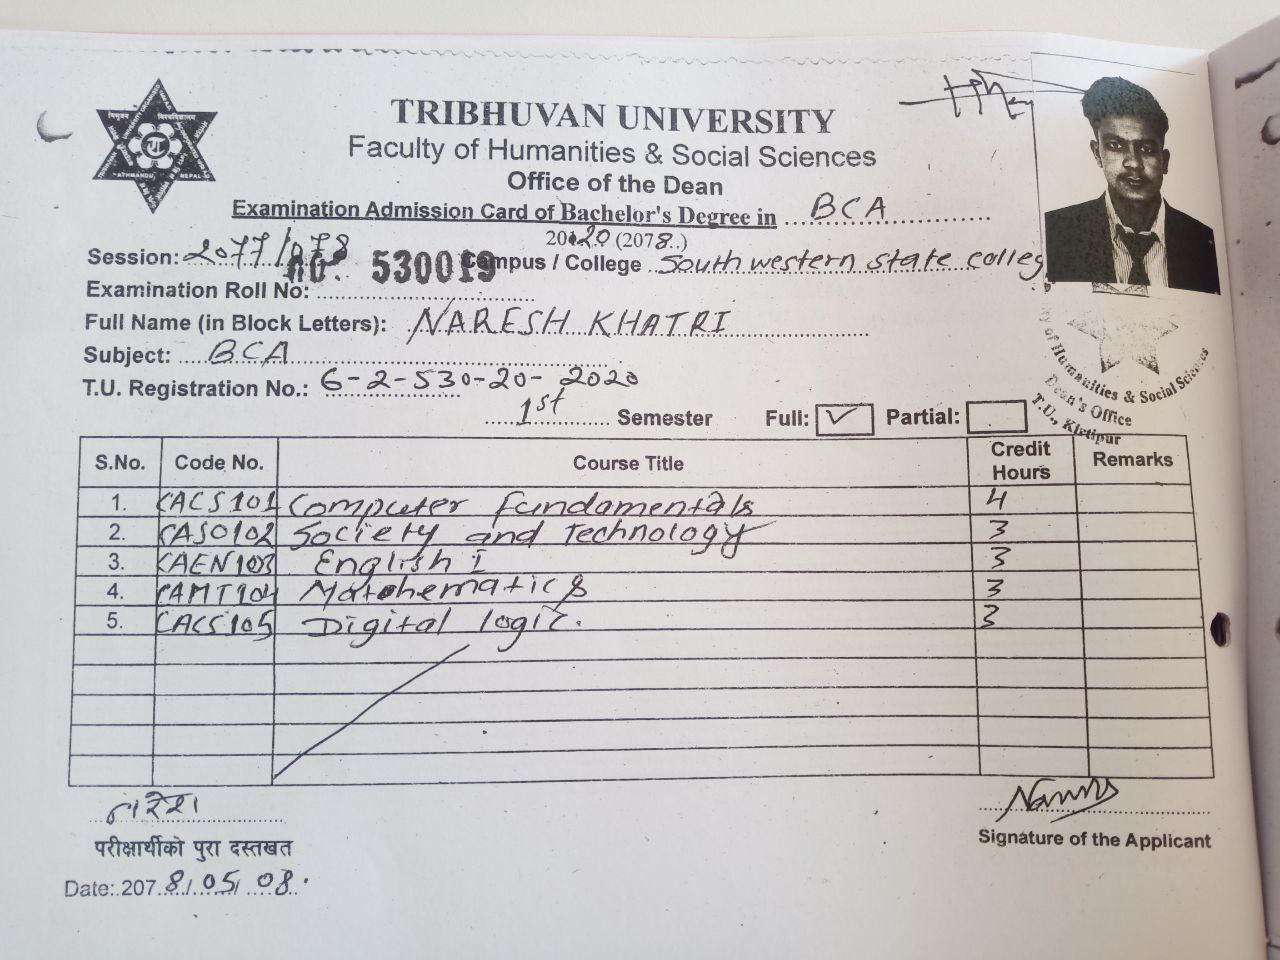 TRIBHUVAN UNIVERSITY
Faculty of Humanities & Social Sciences
Office of the Dean
Examination Admission Card of Bachelor's Degree in BCA
2020 (2078.)
Session: 2077/078 Campus / College Southwestern state colleg
Examination Roll No: 530019
Full Name (in Block Letters): NARESH KHATRI
Subject: BCA
T.U. Registration No.: 6-2-530-20-2020
1st Semester Full: ✓ Partial:
of Humanities & Social Scie
Dean's Office
T.U., Kirtipur
S.No. Code No. Course Title Credit Hours Remarks
1. CACS101 Computer Fundamentals 4
2. CASO102 Society and Technology 3
3. CAEN103 English I 3
4. CAMT104 Mathematics 3
5. CACS105 Digital logic. 3
नरेश
परीक्षार्थीको पुरा दस्तखत
Signature of the Applicant
Date: 2078/05/08.